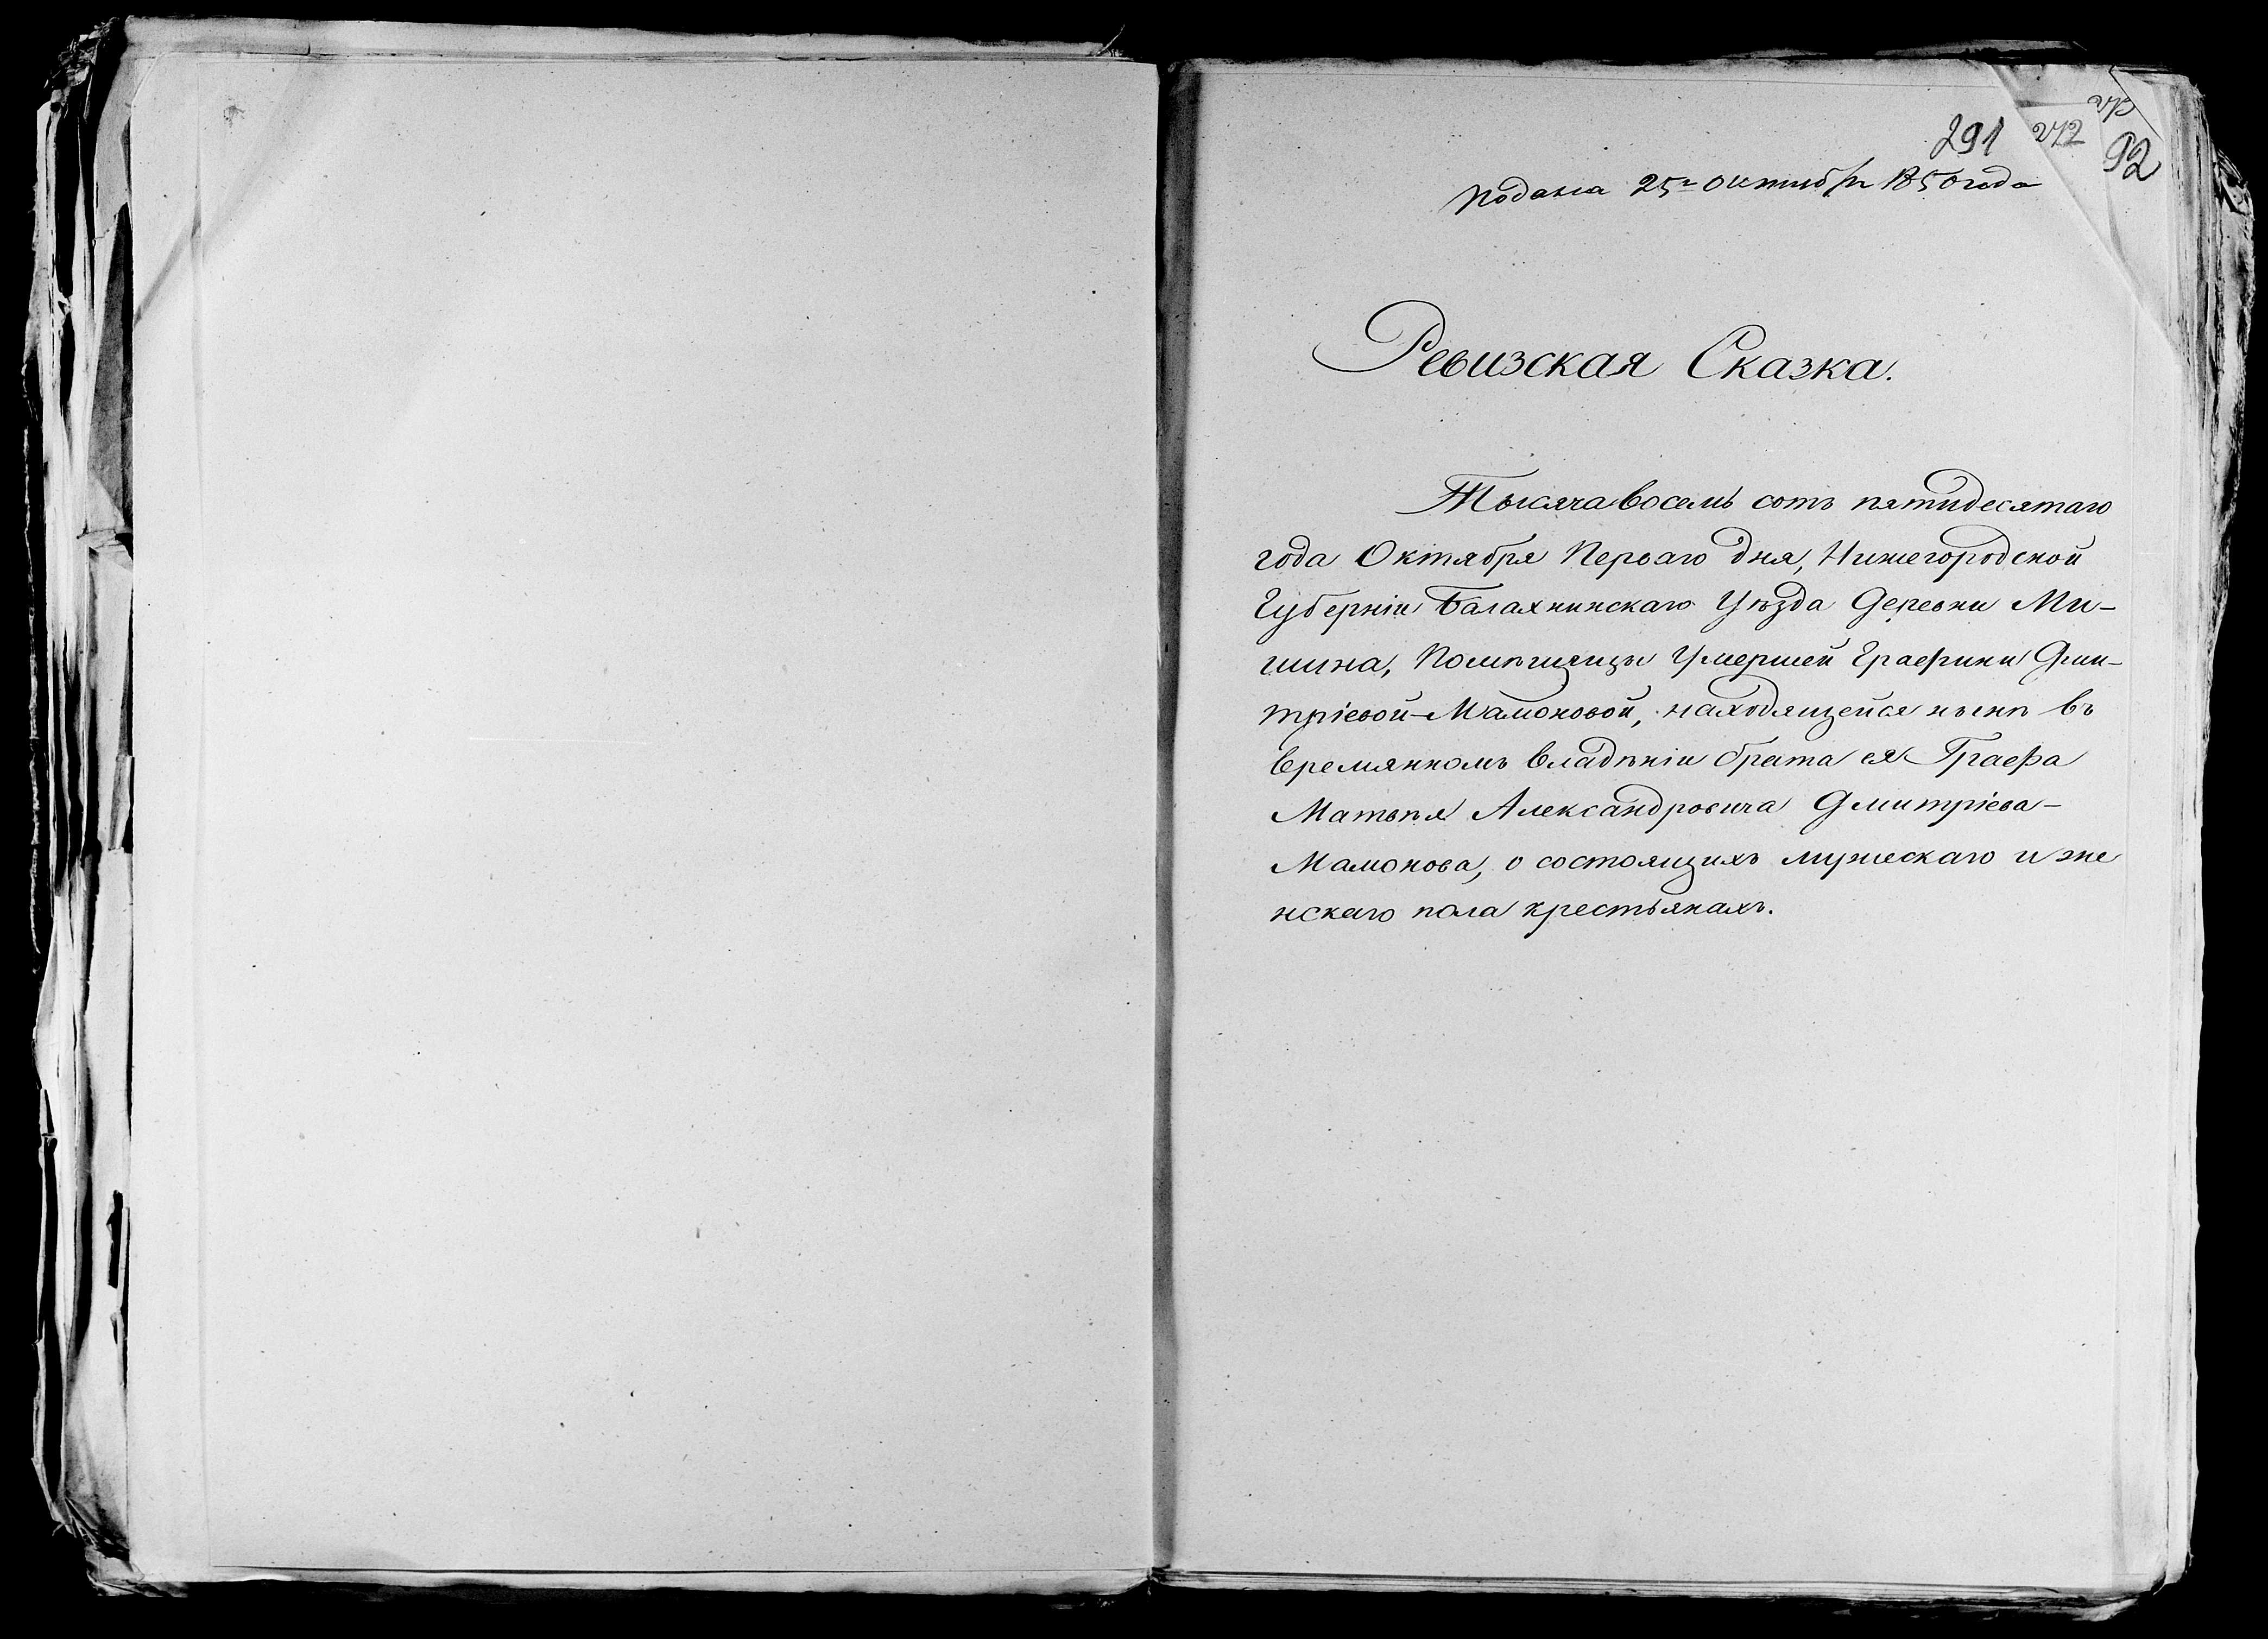 273
291 272
92
подана 25го октября 1850 года
Ревизская Сказка.
Тысяча восемь сотъ пятидесятаго
года Октября Перваго дня, Нижегородской
Губерніи Балахнинскаго Уѣзда Деревни Ми-
шина, Помѣщицы Умершей Графини Дми-
тріевой-Мамоновой, находящейся нынѣ въ
времянномъ владѣніи брата ея Графа
Матвѣя Александровича Дмитріева-
Мамонова, о состоящихъ мужескаго и же
нскаго пола крестьянахъ.